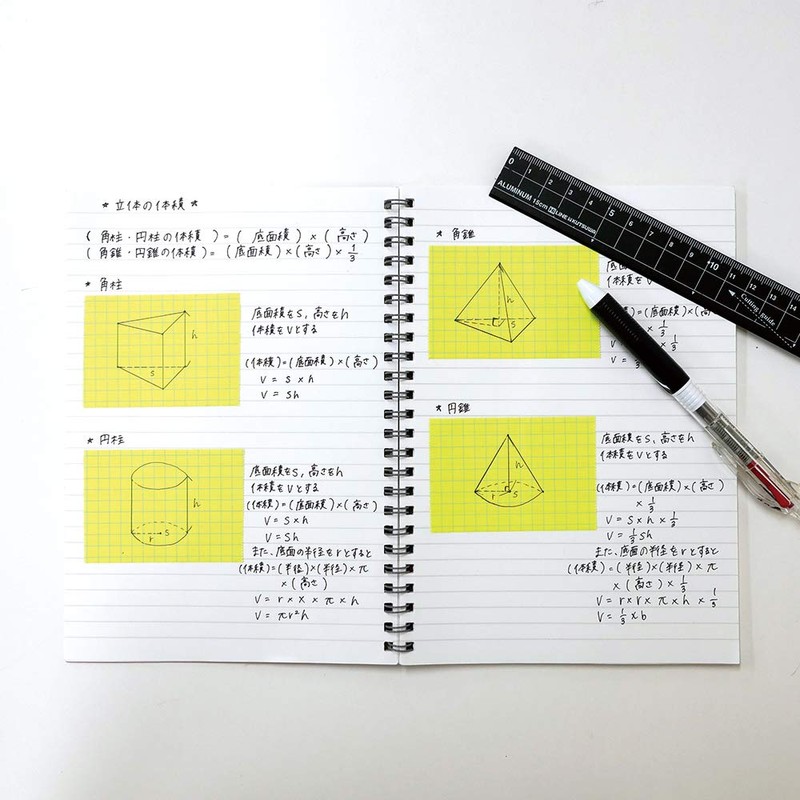 * 立体の体積 *
( 角柱・円柱の体積 ) = ( 底面積 ) × ( 高さ )
( 角錐・円錐の体積 ) = ( 底面積 ) × ( 高さ ) × 1/3
* 角柱
h
S
底面積をS, 高さをh
体積をVとする
(体積)=(底面積)×(高さ)
V = S × h
V = Sh
* 円柱
h
r
S
底面積をS, 高さをh
体積をVとする
(体積)=(底面積)×(高さ)
V = S × h
V = Sh
また、底面の半径をrとすると
(体積)=(半径)×(半径)×π
×(高さ)
V = r × x × π × h
V = πr²h
* 角錐
h
S
底面
体積をV
=(底面積)×(高さ
× 1/3
× 1/3
V =
* 円錐
h
r
S
底面積をS, 高さをh
体積をVとする
(体積)=(底面積)×(高さ)
× 1/3
V = S × h × 1/3
V = 1/3 Sh
また、底面の半径をrとすると
(体積)=(半径)×(半径)×π
×(高さ)× 1/3
V = r × r × π × h × 1/3
V = 1/3 × b
0 1 2 3 4 5 6 7 8 9 10 11 12 13 14
ALUMINUM 15cm LINEX/KUTSUWA
Cutting guide